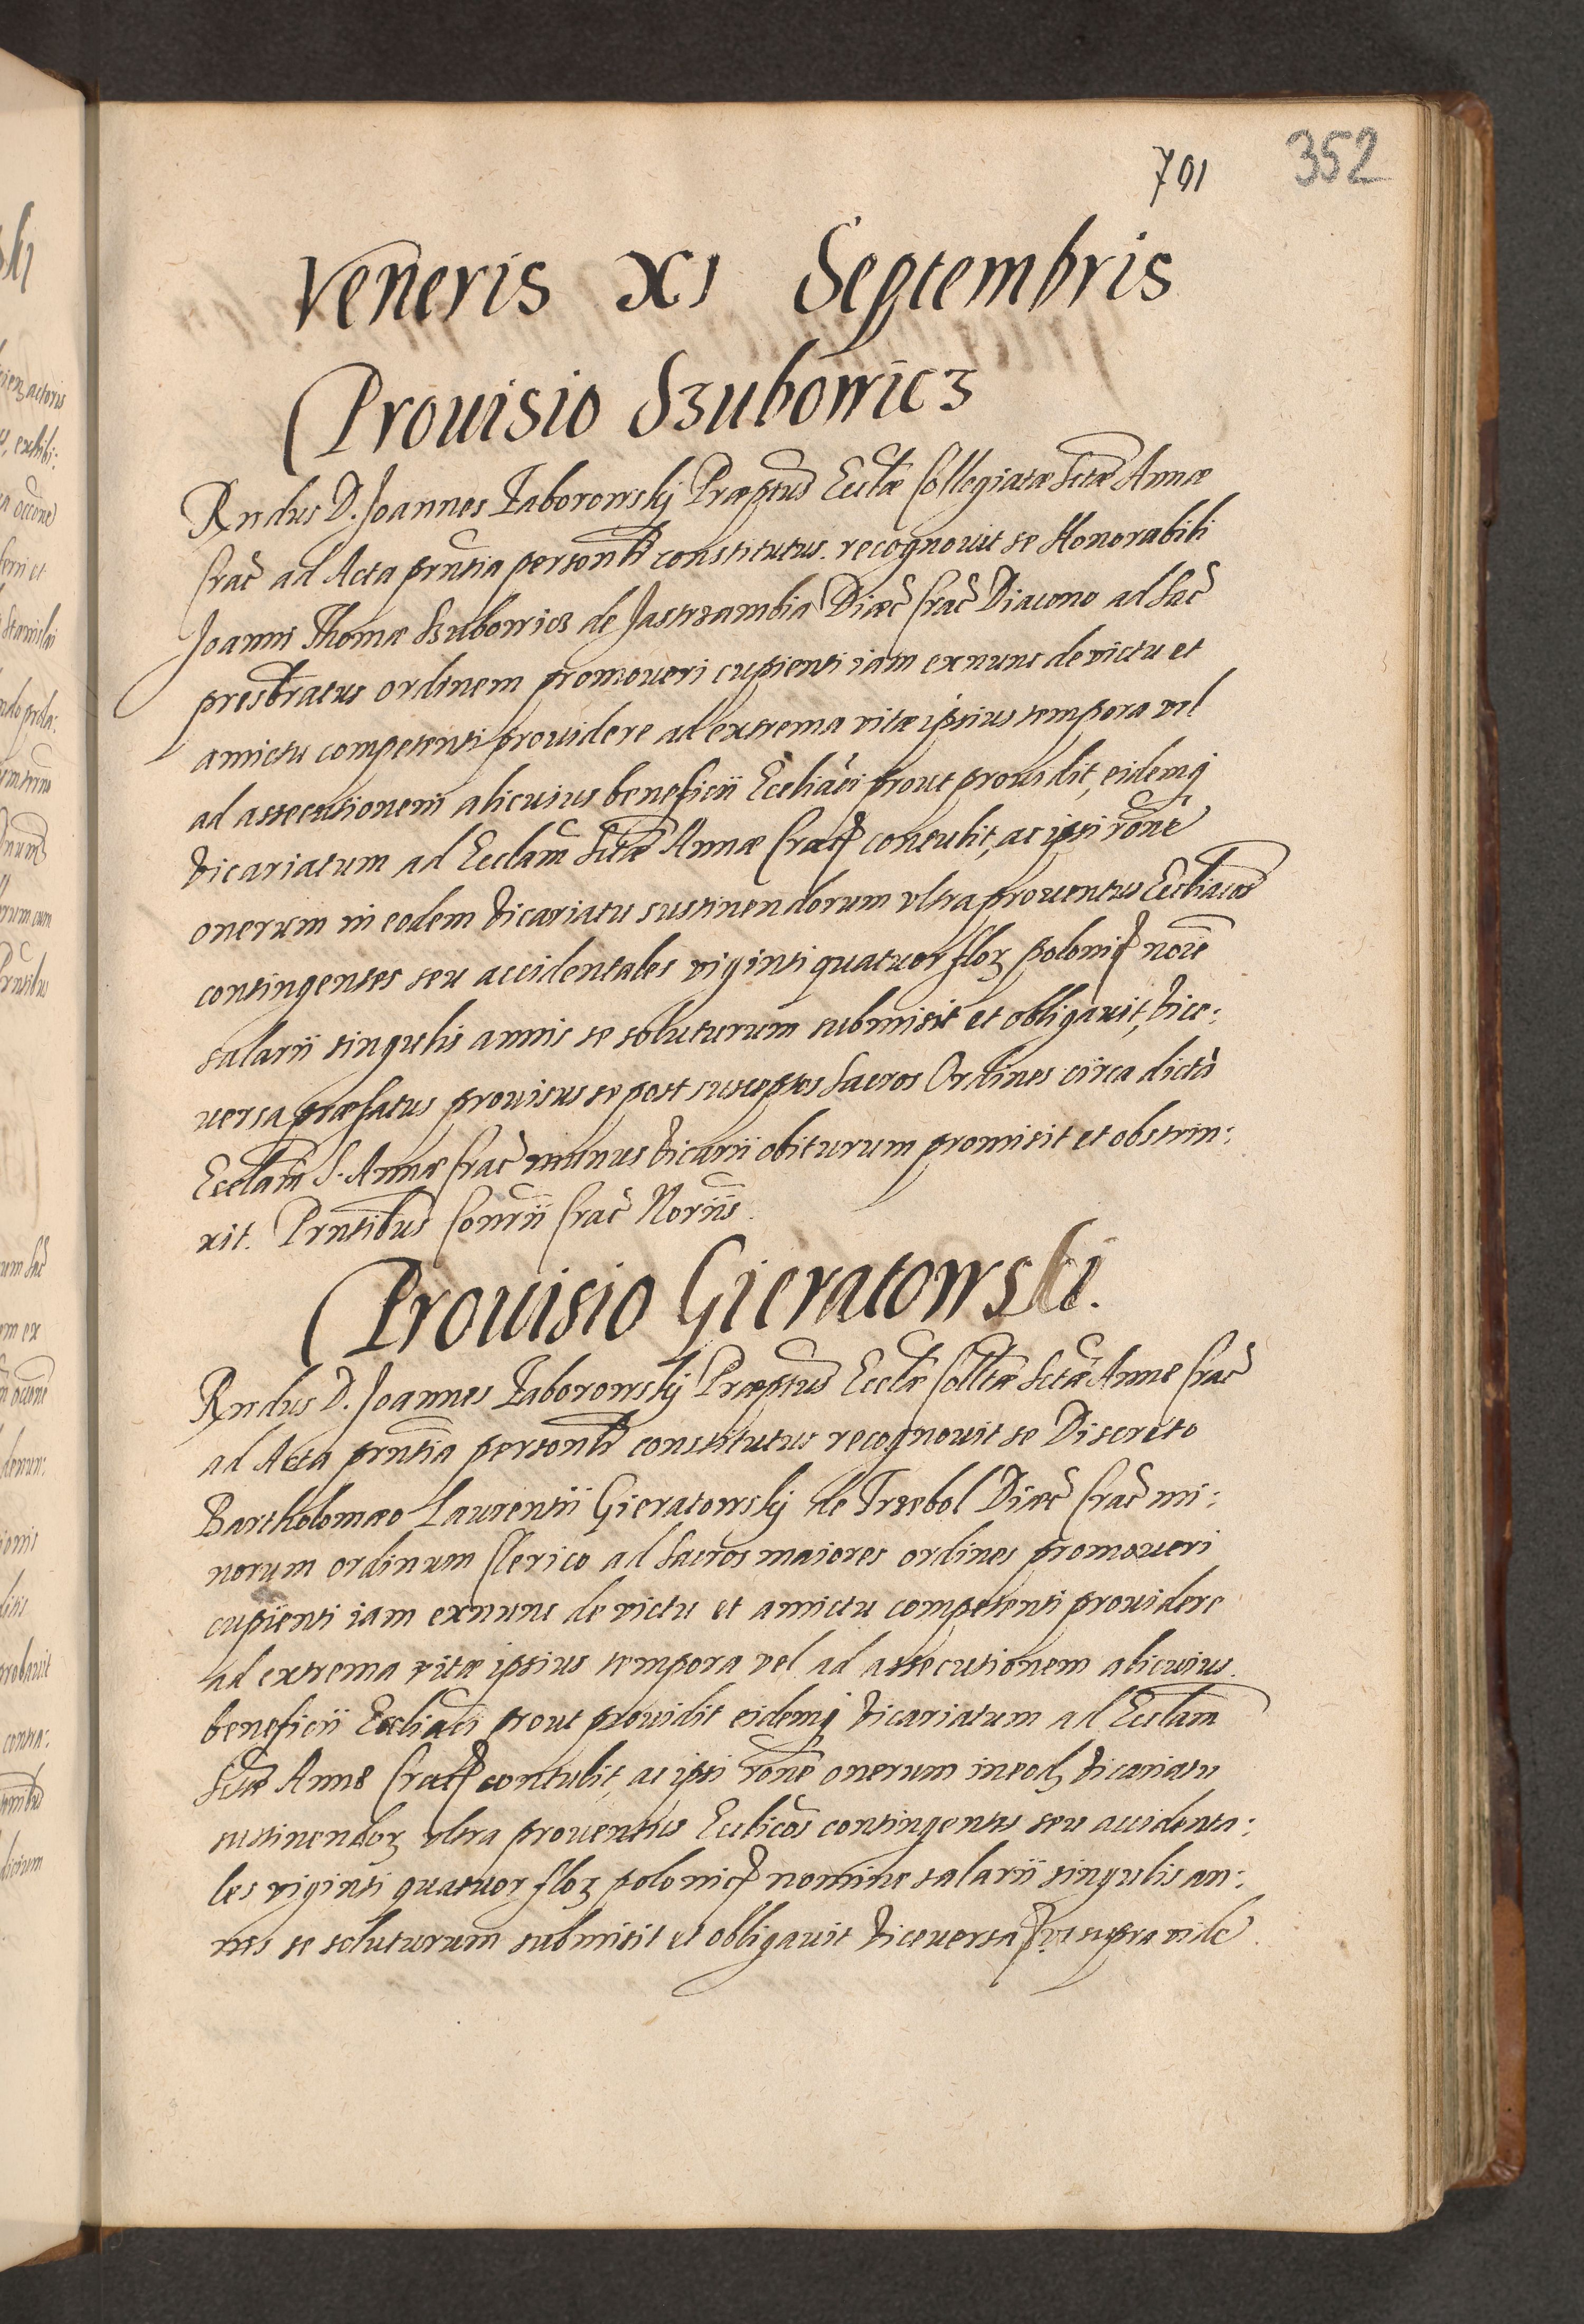 701 352
Veneris XI Septembris
Prouisio Szubowicz
Rndus D. Joannes Zaborowsky Præptus Ecclæ Collegiatæ Sctæ Annæ
Crac̃ ad Acta prntia personlr constitutus. recognouit se Honorabili
Joanni Thomæ Szubowicz de Jastrzambia Diæc̃ Crac̃ Diacono ad Sac̃
presbratus ordinem promoueri cupienti iam exnunc de victu et
amictu competenti prouidere ad extrema vitæ ipsius tempora vel
ad assecutionem alicuius beneficii Eccliaci prout prouidit, eidemq
Vicariatum ad Ecclam Sctæ Annæ Crac contulit, ac ipsi rõne
onerum in eodem Vicariatu sustinendorum vltra prouentus Eccliacos
contingentes seu accidentales viginti quatuor floz polonic noie
salarii singulis annis se soluturum submisit et obligauit, Vice:
uersa præfatus prouisus se post susceptos Sacros Ordines circa dictã
Ecclam S. Annæ Crac̃ munus Vicarii obiturum promisit et obstrin:
xit. Prntibus Conrii Crac̃ Noriis.
Prouisio Gieratowski.
Rndus D. Joannes Zaborowsky Præptus Ecclæ Colltæ Sctæ Anne Crac̃
ad Acta prntia personlr constitutus recognouit se Discreto
Bartholomæo Laurentii Gieratowsky de Trzebol Diæc̃ Crac̃ mi:
norum ordinum Clerico ad Sacros maiores ordines promoueri
cupienti iam exnunc de victu et amictu competenti prouidere
ad extrema vitæ ipsius tempora vel ad assecutionem alicuius
beneficii Eccliaci prout prouidit eidemq Vicariatum ad Ecclam
Sctæ Annæ Crac contulit, ac ipsi rõne onerum in eodz Vicariatu
sustinendoz vltra prouentus Ecclicos contingentes seu accidenta:
les viginti quatuor floz polonic nomine salarii singulis an:
nis se soluturum submisit et obligauit Viceuersa vt supra vide